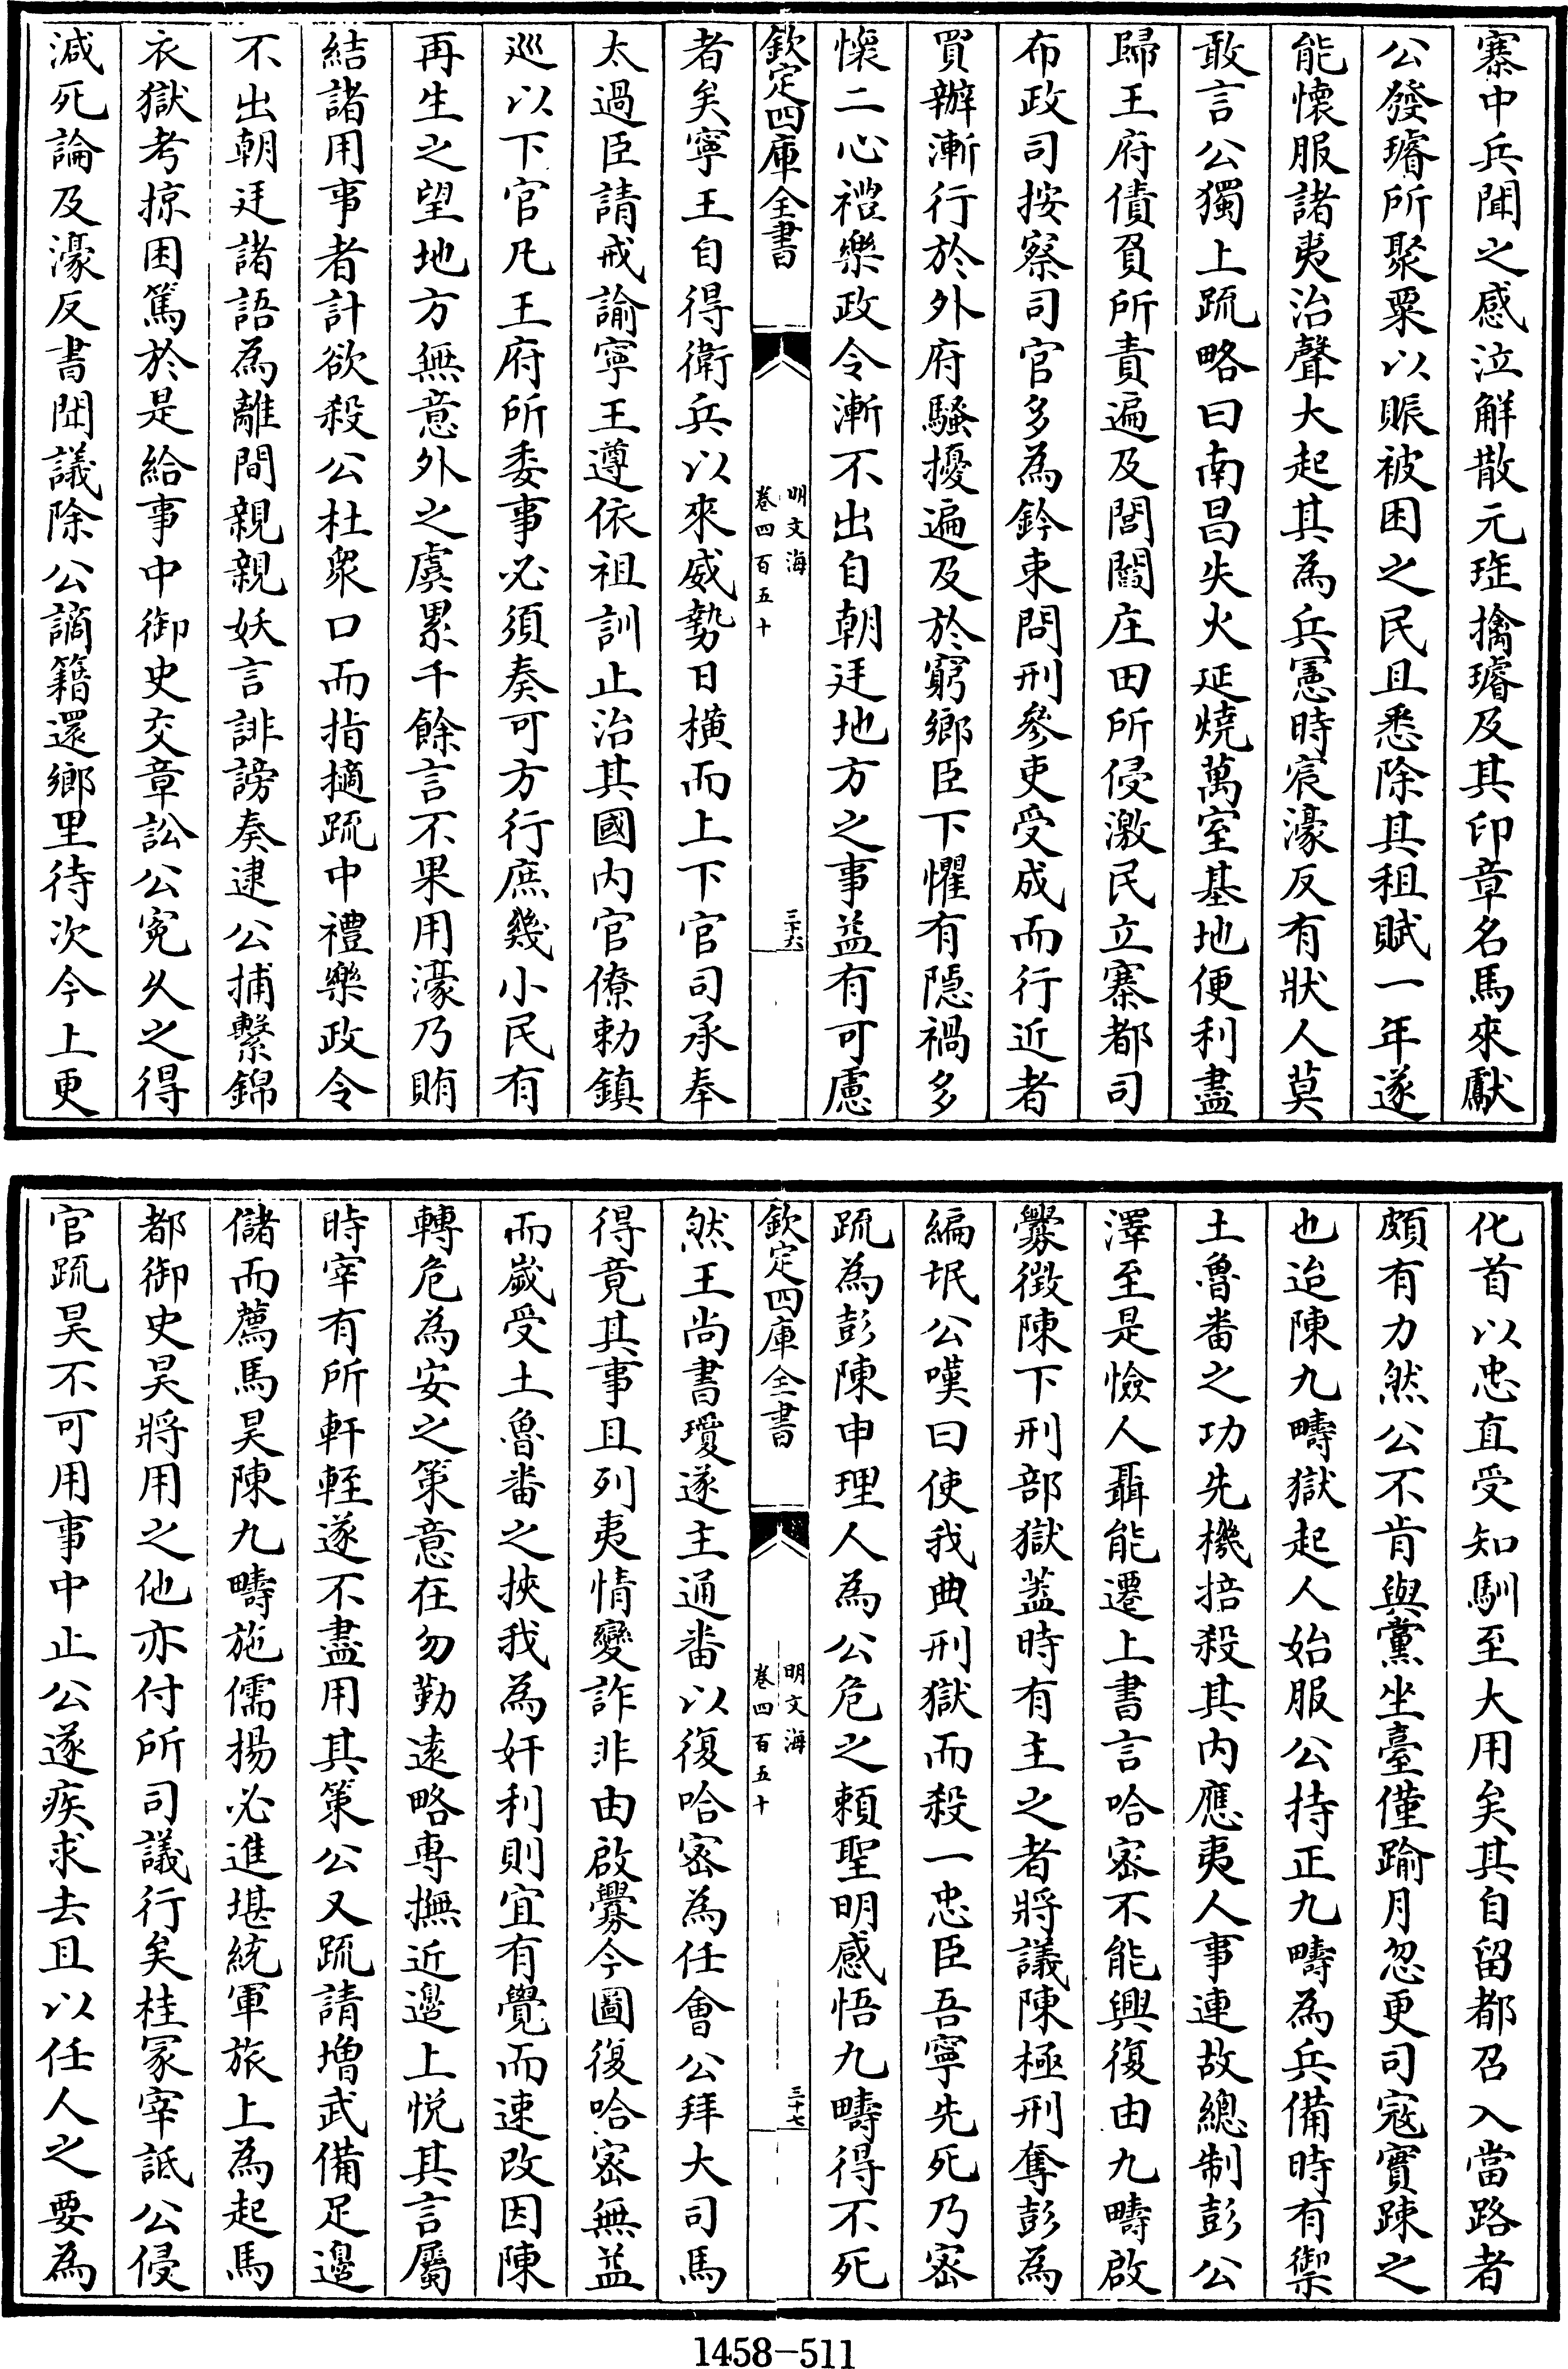 寨中兵聞之感泣解散元琟擒璿及其印章名馬來獻
公發璿所聚粟以賑被困之民且悉除其租賦一年遂
能懷服諸夷治聲大起其為兵憲時宸濠反有狀人莫
敢言公獨上疏略曰南昌失火延燒萬室基地便利盡
歸王府債負所責遍及閭閻庄田所侵激民立寨都司
布政司按察司官多為鈐束問刑參吏受成而行近者
買辦漸行於外府騷擾遍及於窮鄉臣下懼有隱禍多
懷二心禮樂政令漸不出自朝廷地方之事益有可慮
欽定四庫全書
明文海
卷四百五十
三十六
者矣寧王自得衛兵以來威勢日橫而上下官司承奉
太過臣請戒諭寧王遵依祖訓止治其國內官僚勅鎮
巡以下官凡王府所委事必須奏可方行庶幾小民有
再生之望地方無意外之虞累千餘言不果用濠乃賄
結諸用事者計欲殺公杜衆口而指擿疏中禮樂政令
不出朝廷諸語為離間親親妖言誹謗奏逮公捕繫錦
衣獄考掠困篤於是給事中御史交章訟公寃久之得
減死論及濠反書聞議除公謫籍還鄉里待次今上更
化首以忠直受知馴至大用矣其自留都召入當路者
頗有力然公不肯與黨坐臺僅踰月忽更司寇實踈之
也迨陳九疇獄起人始服公持正九疇為兵備時有禦
土魯番之功先機掊殺其內應夷人事連故總制彭公
澤至是憸人聶能遷上書言哈密不能興復由九疇啟
釁徵陳下刑部獄蓋時有主之者將議陳極刑奪彭為
編氓公嘆曰使我典刑獄而殺一忠臣吾寧先死乃密
疏為彭陳申理人為公危之賴聖明感悟九疇得不死
欽定四庫全書
明文海
卷四百五十
三十七
然王尚書瓊遂主通番以復哈密為任會公拜大司馬
得竟其事且列夷情變詐非由啟釁今圖復哈密無益
而嵗受土魯番之挾我為奸利則宜有覺而速改因陳
轉危為安之策意在勿勤遠略專撫近邊上悅其言屬
時宰有所軒輊遂不盡用其策公又疏請增武備足邊
儲而薦馬昊陳九疇施儒楊必進堪統軍旅上為起馬
都御史昊將用之他亦付所司議行矣桂冢宰詆公侵
官疏昊不可用事中止公遂疾求去且以任人之要為
1458-511